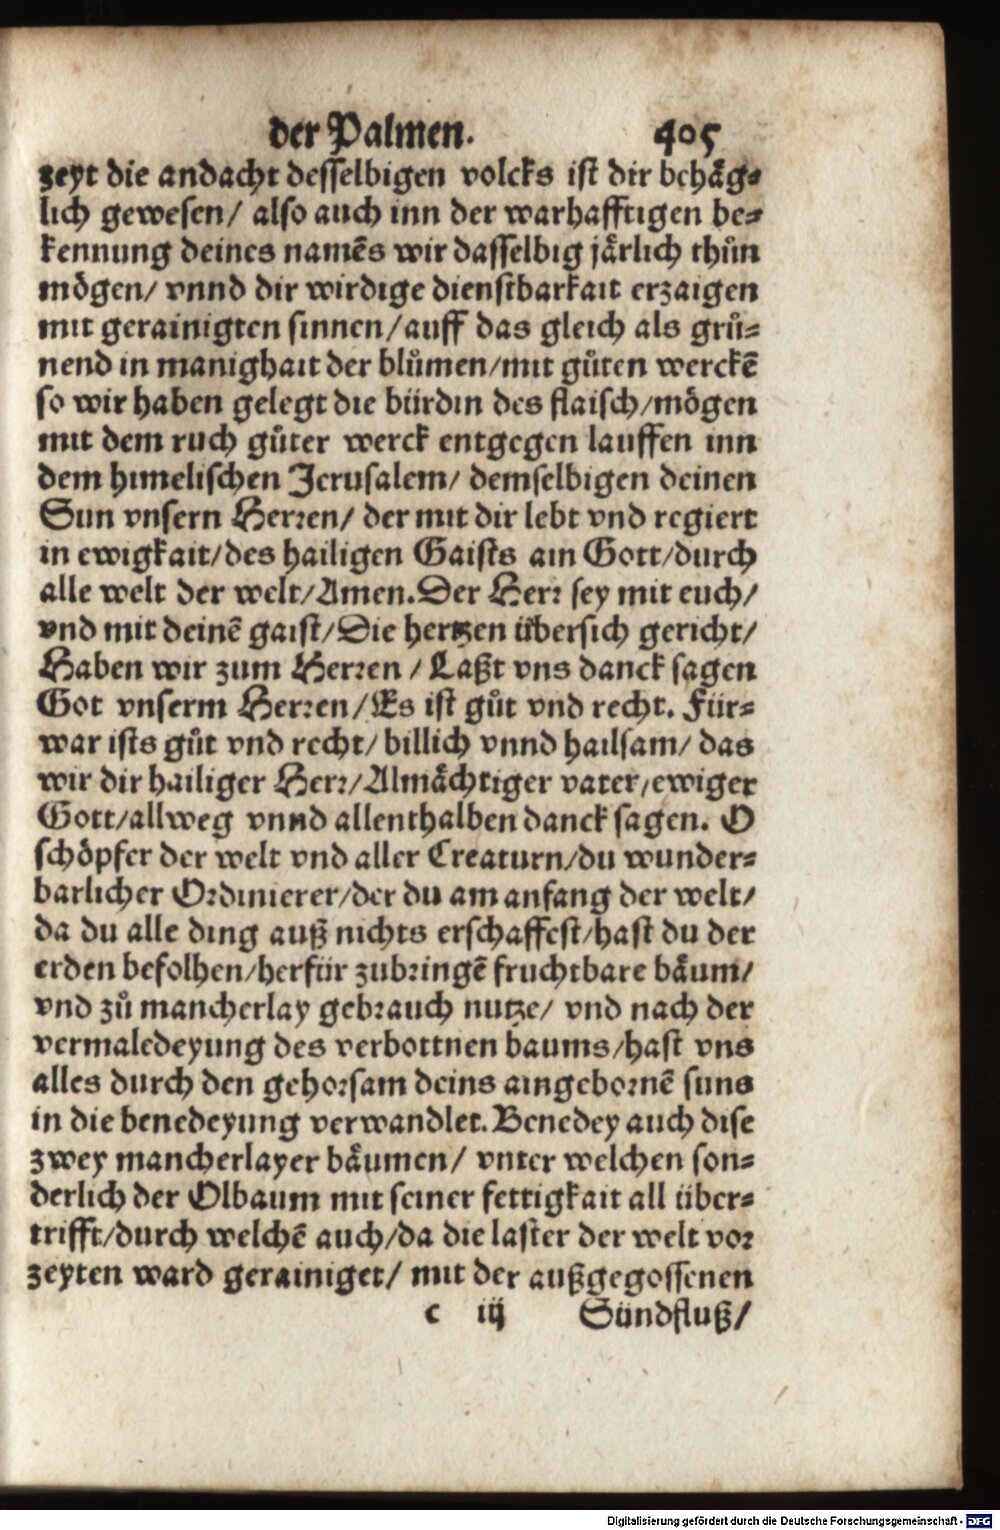 der Palmen. 405
zeyt die andacht desselbigen volcks ist dir behåg⸗
lich gewesen/ also auch inn der warhafftigen be⸗
kennung deines namẽs wir dasselbig jårlich thůn
mögen/ vnnd dir wirdige dienstbarkait erzaigen
mit gerainigten sinnen/auff das gleich als grů⸗
nend in manighait der blůmen/mit gůten werckẽ
so wir haben gelegt die bürdin des flaisch/mögen
mit dem ruch gůter werck entgegen lauffen inn
dem himelischen Jerusalem/ demselbigen deinen
Sun vnsern Herꝛen/ der mit dir lebt vnd regiert
in ewigkait/des hailigen Gaists ain Gott/durch
alle welt der welt/Amen.Der Herꝛ sey mit euch/
vnd mit deinẽ gaist/Die hertzen übersich gericht/
Haben wir zum Herꝛen / Laßt vns danck sagen
Got vnserm Herꝛen/Es ist gůt vnd recht. Für⸗
war ists gůt vnd recht/ billich vnnd hailsam/ das
wir dir hailiger Herꝛ/Almåchtiger vater/ewiger
Gott/allweg vnnd allenthalben danck sagen. O
schöpfer der welt vnd aller Creaturn/du wunder⸗
barlicher Oꝛdinierer/der du am anfang der welt/
da du alle ding auß nichts erschaffest/hast du der
erden befolhen/herfür zubꝛingẽ fruchtbare båum/
vnd zů mancherlay gebꝛauch nutze/ vnd nach der
vermaledeyung des verbottnen baums/hast vns
alles durch den gehoꝛsam deins aingeboꝛnẽ suns
in die benedeyung verwandlet.Benedey auch dise
zwey mancherlayer båumen/ vnter welchen son⸗
derlich der Olbaum mit seiner fettigkait all über⸗
trifft/durch welchẽ auch/da die laster der welt voꝛ
zeyten ward gerainiget/ mit der außgegossenen
c iij Sündfluß/
Digitalisierung gefördert durch die Deutsche Forschungsgemeinschaft - DFG